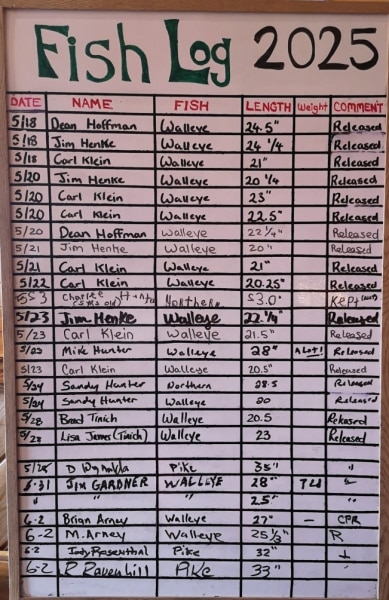 Fish Log 2025
DATE NAME FISH LENGTH Weight COMMENT
5/18 Dean Hoffman Walleye 24.5" Released
5/18 Jim Henke Walleye 24 1/4 Released
5/18 Carl Klein Walleye 21" Released
5/20 Jim Henke Walleye 20 1/4 Released
5/20 Carl Klein Walleye 23" Released
5/20 Carl Klein Walleye 22.5" Released
5/20 Dean Hoffman Walleye 22 1/4" Released
5/21 Jim Henke Walleye 20" Released
5/21 Carl Klein Walleye 21" Released
5/22 Carl Klein Walleye 20.25" Released
Charlie Northern Kept
5/23 Jim Henke Walleye 22 1/4" Released
5/23 Carl Klein Walleye 21.5" Released
Mike Hunter Walleye 28" A Lot! Released
5/23 Carl Klein Walleye 20.5" Released
5/24 Sandy Hunter Northern 28.5 Released
5/24 Sandy Hunter Walleye 20 Released
5/28 Brad Tinich Walleye 20.5 Released
5/28 Lisa James (Tinich) Walleye 23 Released
D Pike 35" "
JIM GARDNER WALLEYE 28"
" " " 25" "
6-2 Brian Arney Walleye 27" — CPR
6-2 M. Arney Walleye R
6-2 Judy Rosenthal Pike 32"
6-2 R Ravenhill Pike 33" "